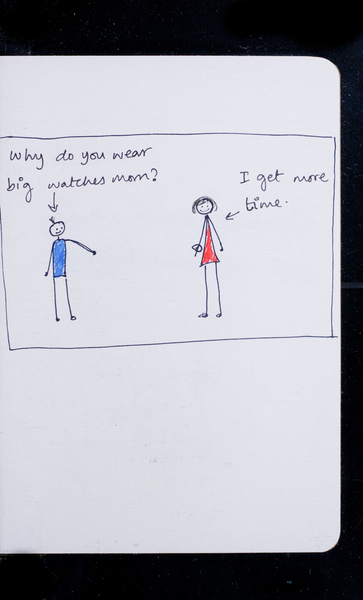 Why do you wear
big watches mom?
I get more
time.